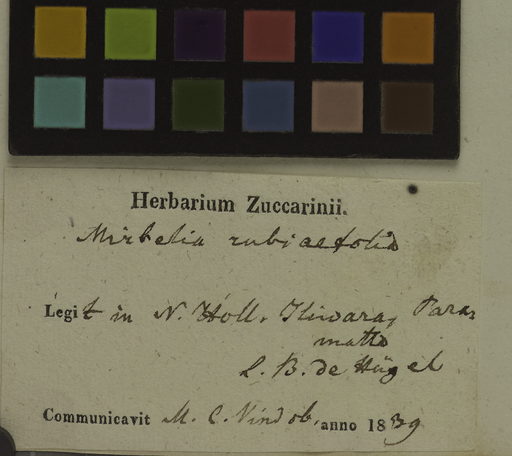 Herbarium Zuccarinii.
Mirbelia rubiaefolia
Legit in N. Holl. Iliwara, Para,
matta
L. B. de Hügel
Communicavit M. C. Vindob. anno 1839